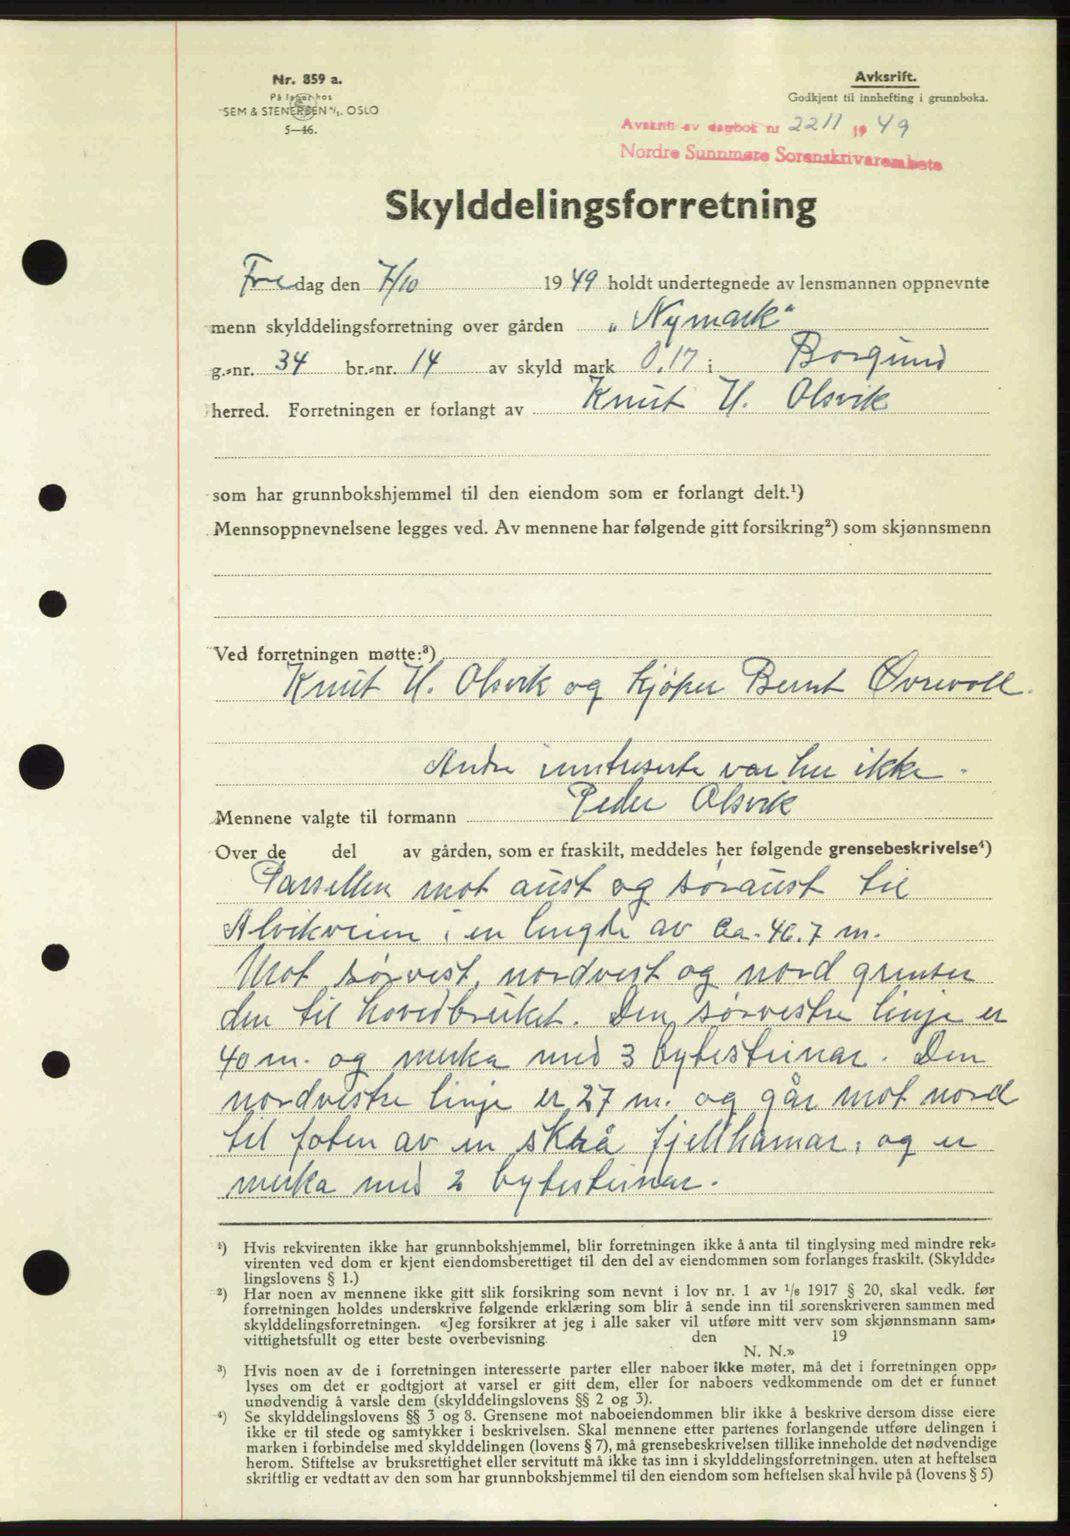 Nr. 859 a.
På lager hos
SEM & STENERSEN A/S. OSLO
5—46.
Avksrift.
Godkjent til innhefting i grunnboka.
Avskrift av dagbok nr 2211 19 49
Nordre Sunnmøre Sorenskrivarembete
Skylddelingsforretning
Fredag den 7/10 1949 holdt undertegnede av lensmannen oppnevnte
menn skylddelingsforretning over gården „Nymark"
g.-nr. 34 br.-nr. 14 av skyld mark 0,17 i Borgund
herred. Forretningen er forlangt av Knut H. Olsvik
som har grunnbokshjemmel til den eiendom som er forlangt delt.¹)
Mennsoppnevnelsene legges ved. Av mennene har følgende gitt forsikring²) som skjønnsmenn
Ved forretningen møtte:³)
Knut H. Olsvik og kjøper Bernt Øvrevoll.
Andre inntreserte var her ikke.
Mennene valgte til formann Peder Olsvik
Over de del av gården, som er fraskilt, meddeles her følgende grensebeskrivelse⁴)
Parsellen mot aust og søraust til
Alvikveien i en lengde av ca. 46.7 m.
Mot sørvest, nordvest og nord grenser
den til hovedbruket. Den sørvestre linje er
40 m. og merka med 3 bytesteinar. Den
nordvestre linje er 27 m. og går mot nord
til foten av en skrå fjellhamar, og er
merka med 2 bytesteinar.
¹) Hvis rekvirenten ikke har grunnbokshjemmel, blir forretningen ikke å anta til tinglysing med mindre rek-
virenten ved dom er kjent eiendomsberettiget til den del av eiendommen som forlanges fraskilt. (Skyldde-
lingslovens § 1.)
²) Har noen av mennene ikke gitt slik forsikring som nevnt i lov nr. 1 av 1/6 1917 § 20, skal vedk. før
forretningen holdes underskrive følgende erklæring som blir å sende inn til sorenskriveren sammen med
skylddelingsforretningen. «Jeg forsikrer at jeg i alle saker vil utføre mitt verv som skjønnsmann sam-
vittighetsfullt og etter beste overbevisning den 19
N. N.»
³) Hvis noen av de i forretningen interesserte parter eller naboer ikke møter, må det i forretningen opp-
lyses om det er godtgjort at varsel er gitt dem, eller for naboers vedkommende om det er funnet
unødvendig å varsle dem (skylddelingslovens §§ 2 og 3).
⁴) Se skylddelingslovens §§ 3 og 8. Grensene mot naboeiendommen blir ikke å beskrive dersom disse eiere
ikke er til stede og samtykker i beskrivelsen. Skal mennene etter partenes forlangende utføre delingen i
marken i forbindelse med skylddelingen (lovens § 7), må grensebeskrivelsen tillike inneholde det nødvendige
herom. Stiftelse av bruksrettighet eller servitutt må ikke tas inn i skylddelingsforretningen, uten at heftelsen
skriftlig er vedtatt av den som har grunnbokshjemmel til den eiendom som heftelsen skal hvile på (lovens § 5)